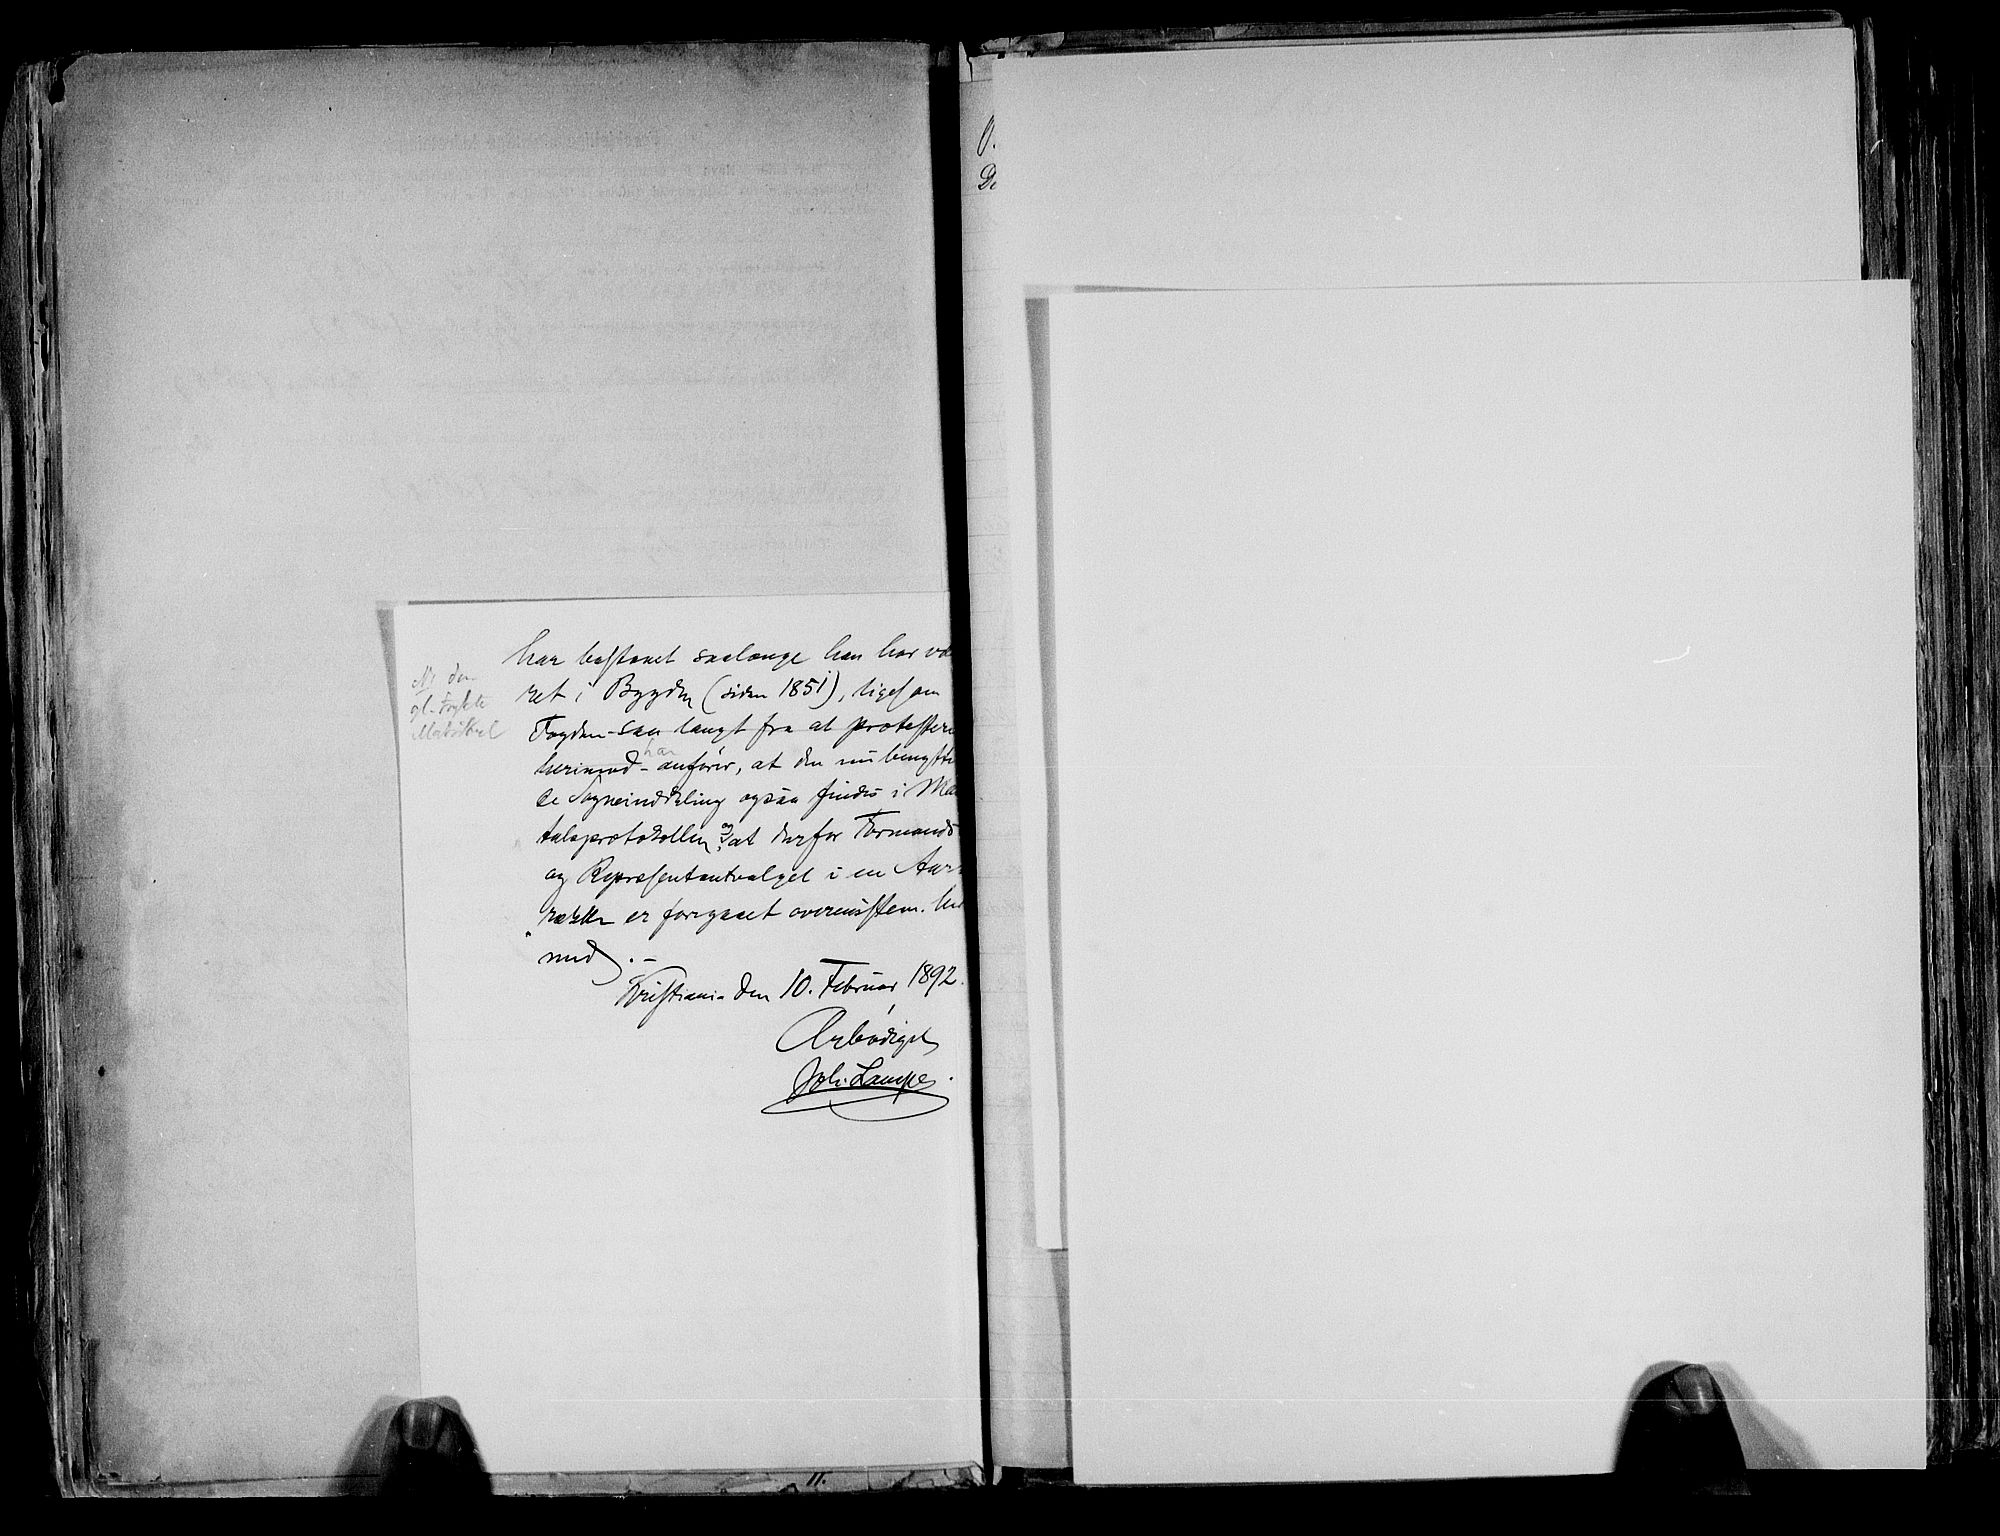 O.
De
har bestaaet saalænge han har væ
ret i Bygden (siden 1851), ligesom
Fogden - saa langt fra at protestere
herimod - har anfører, at den nu benytte
de Sogneinddeling ogsaa findes i Man
talsprotokollen, og at derfor Formands
og Repræsentantvalget i en Aar
række er foregaaet overensstem. her
med. -
Kristiania den 10. Februar 1892.
Ærbødigst
Joh. Lampe.
den
gl. trykte
Matrikel
11.